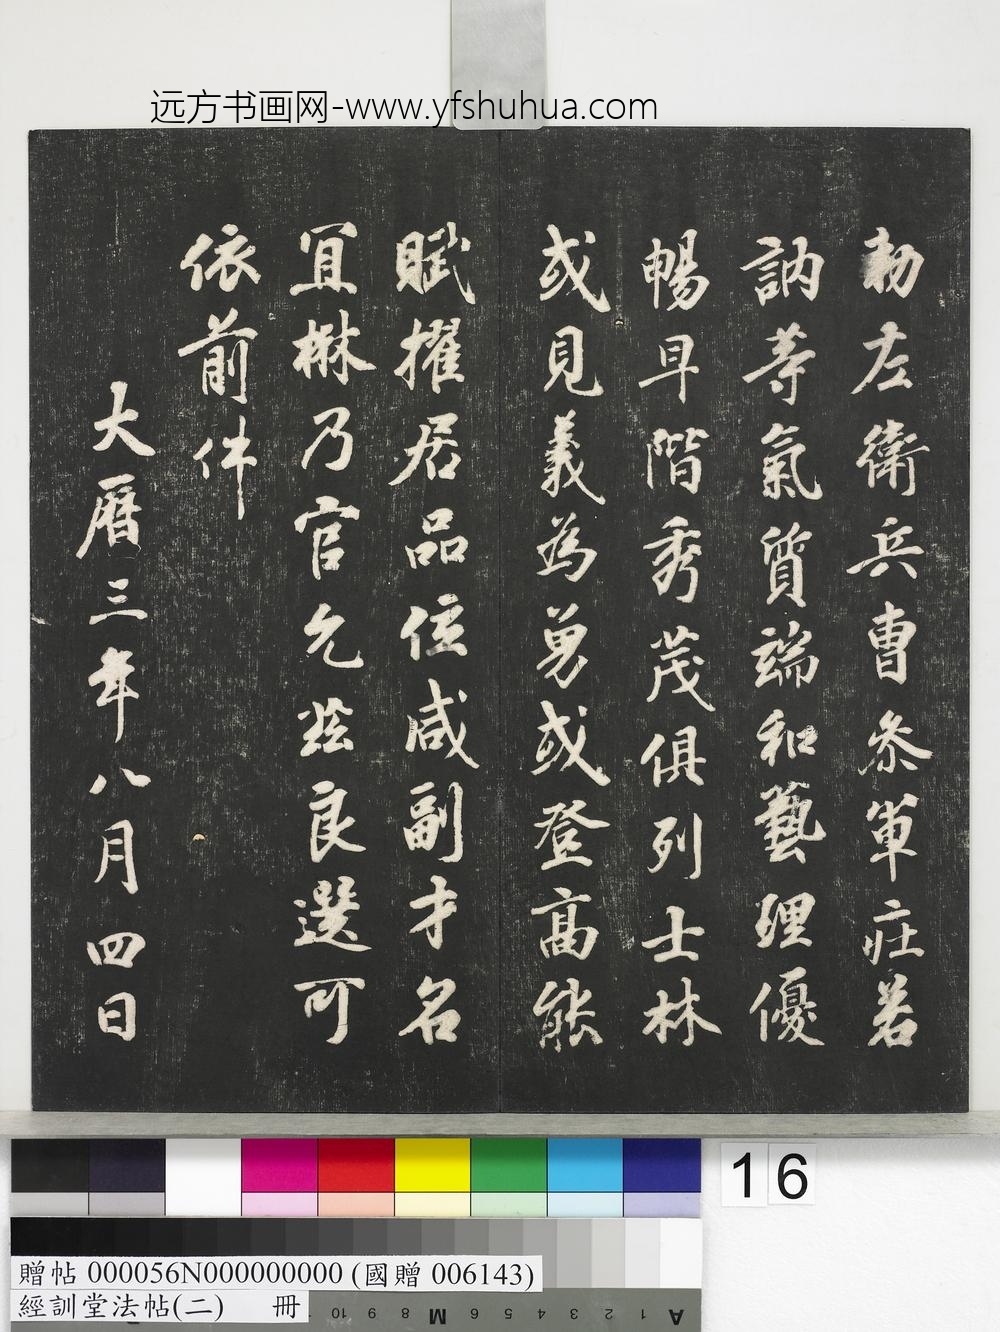 远方书画网-www.yfshuhua.com
勑左衛兵曹叅軍莊若
訥等氣質端和藝理優
暢早階秀茂俱列士林
或見義為勇或登高能
賦擢居品位咸副才名
宜楙乃官允茲良選可
依前件
大曆三年八月四日
16
贈帖 000056N000000000 (國贈 006143)
經訓堂法帖(二) 冊
10 9 8 M 6 5 4 3 2 1 A